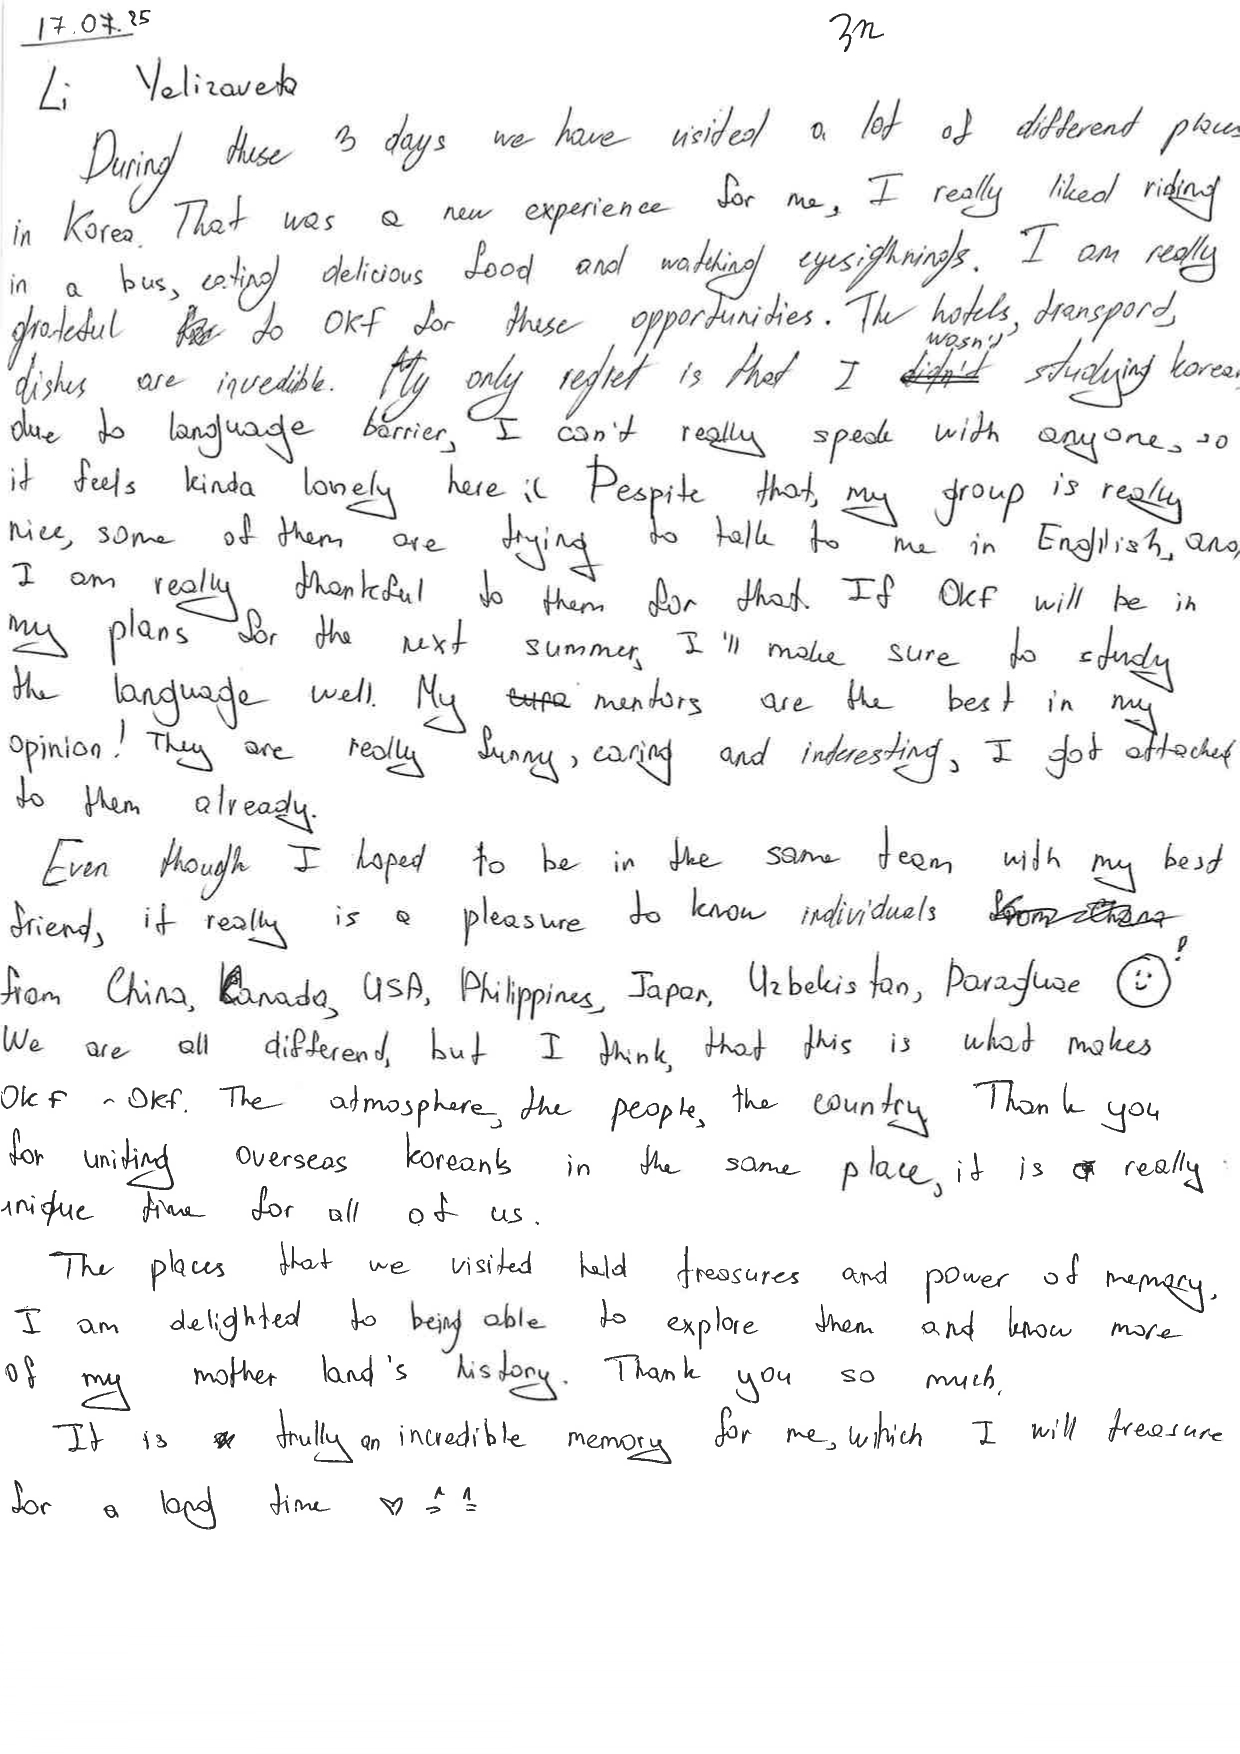 17.07.25
Li Yelizaveta
During these 3 days we have visited a lot of different places
in Korea. That was a new experience for me, I really liked riding
in a bus, eating delicious food and watching eyesighnings. I am really
grateful to OKF for these opportunities. The hotels, transpord,
dishes are incredible. My only regret is that I wasn't studying korean
due to language barrier, I can't really speak with anyone, so
it feels kinda lonely here :( Despite that, my group is really
nice, some of them are trying to talk to me in English, and
I am really thankful to them for that. If OKF will be in
my plans for the next summer, I'll make sure to study
the language well. My mentors are the best in my
opinion! They are really funny, caring and interesting, I got attached
to them already.
Even though I hoped to be in the same team with my best
friend, it really is a pleasure to know individuals
from China, Canada, USA, Philippines, Japan, Uzbekistan, Paraguae !
We are all differend, but I think, that this is what makes
OKF - OKF. The atmosphere, the people, the country. Thank you
for uniting overseas koreans in the same place, it is really
unique time for all of us.
The places that we visited held treasures and power of memory.
I am delighted to being able to explore them and know more
of my mother land's history. Thank you so much.
It is trully an incredible memory for me, which I will treasure
for a long time ♡